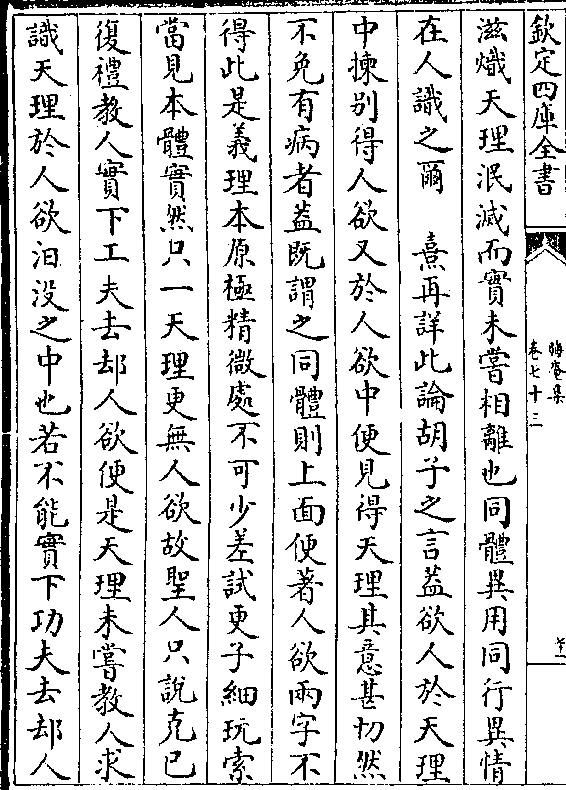 欽定四庫全書
晦菴集
卷七十三
滋熾天理泯滅而實未嘗相離也同體異用同行異情
在人識之爾 熹再詳此論胡子之言葢欲人於天理
中揀别得人欲又於人欲中便見得天理其意甚切然
不免有病者葢既謂之同體則上面便著人欲兩字不
得此是義理本原極精微處不可少差試更子細玩索
當見本體實然只一天理更無人欲故聖人只說克已
復禮教人實下工夫去却人欲便是天理未嘗教人求
識天理於人欲汩没之中也若不能實下功夫去却人